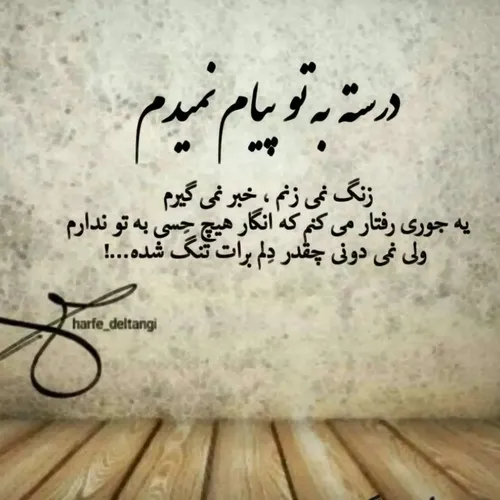 درسته به تو پیام نمیدم
زنگ نمی زنم ، خبر نمی گیرم
یه جوری رفتار می کنم که انگار هیچ حِسی به تو ندارم
ولی نمی دونی چقدر دِلم برات تنگ شده...!
harfe_deltangi